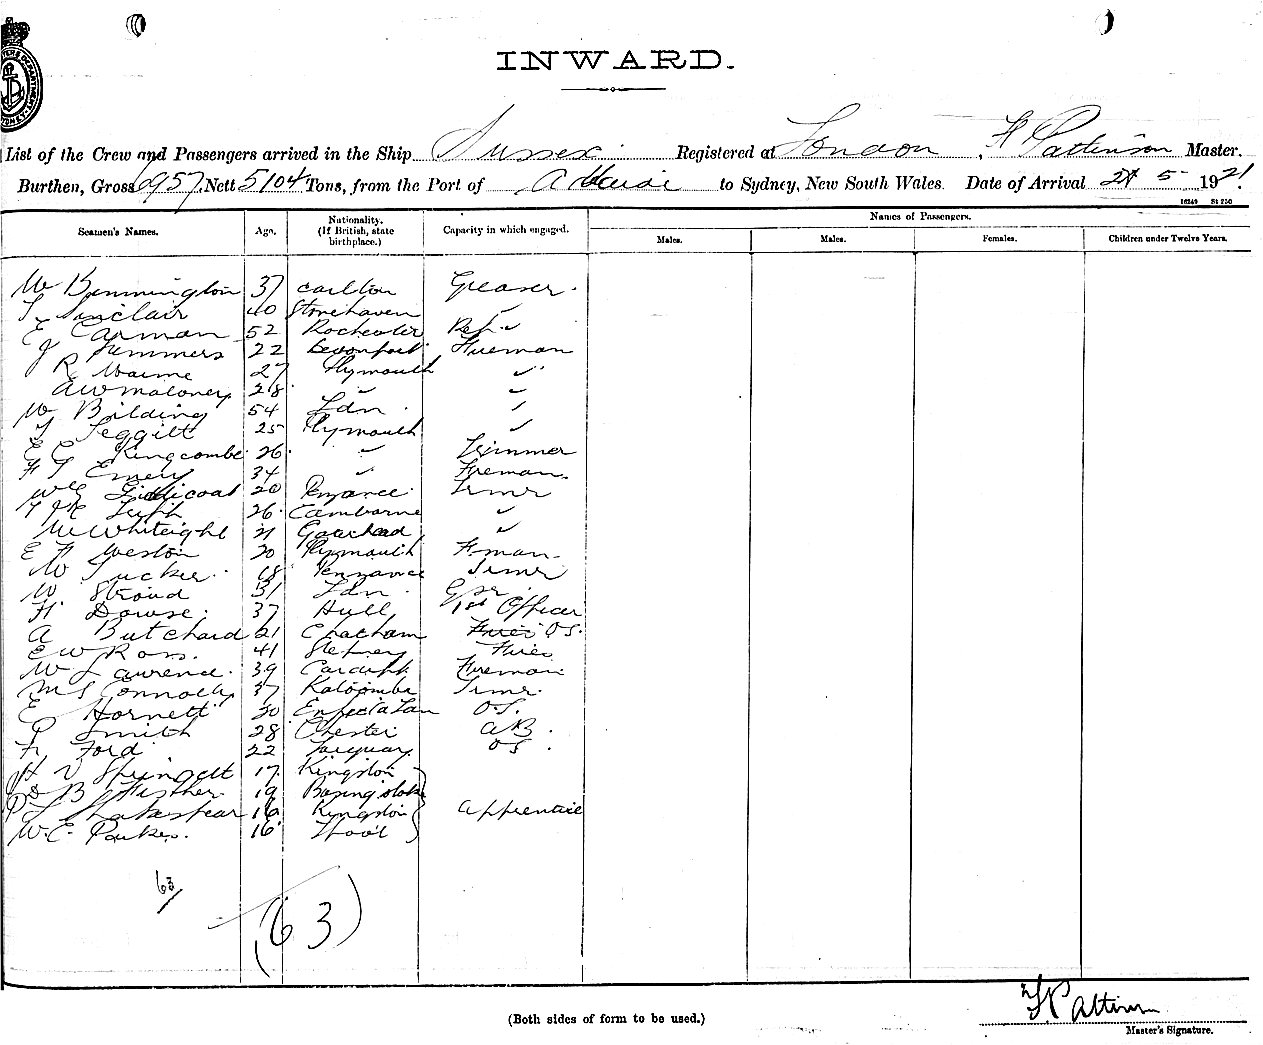 INWARD.
List of the Crew and Passengers arrived in the Ship Sussex Registered at London, F Pattinson Master.
Burthen, Gross 6957, Nett 5104 Tons, from the Port of to Sydney, New South Wales. Date of Arrival 5 1921.
16249 St 230
Names of Passengers.
Seamen's Names. Age. Nationality. (If British, state birthplace.) Capacity in which engaged. Males. Males. Females. Children under Twelve Years.
W Bennington 37 Carlton Greaser.
T Sinclair 40 Stonehaven ✓
E Carman 52 Rochester ✓
J Summers 22 Devonport Fireman
R Warne 27 Plymouth ✓
A W Maloney 28 ✓ ✓
W Bilding 54 Ldn. ✓
T Seggitt 25 Plymouth ✓
E C Kingcombe 26 ✓ Trimmer
F T Emery 34 ✓ Fireman
W G Giddicoat 20 Penzance Trmr
26 Camborne ✓
W Whiteight 21 ✓
E F Weston 20 Plymouth Fman
W Tucker 18 Penzance Trmr
W Stroud 31 Ldn. Gsr
H Dowse. 37 Hull 1st Officer
A Butchard 21 Chatham O S.
E W Ross. 41 Stepney
W Lawrence. 39 Cardiff Fireman
M S Connolly 37 Katoomba Trmr.
E Hornett 30 O.S.
P Smith 28 Chester A B.
F. Ford 22 Torquay OS
H V Springett 17 Kingston
B Fisher 19 Basingstoke
P L Shakespear 16 Kingston Apprentice
W. E. Parker. 16 L'pool
63
(63)
F Pattinson
(Both sides of form to be used.)
Master's Signature.